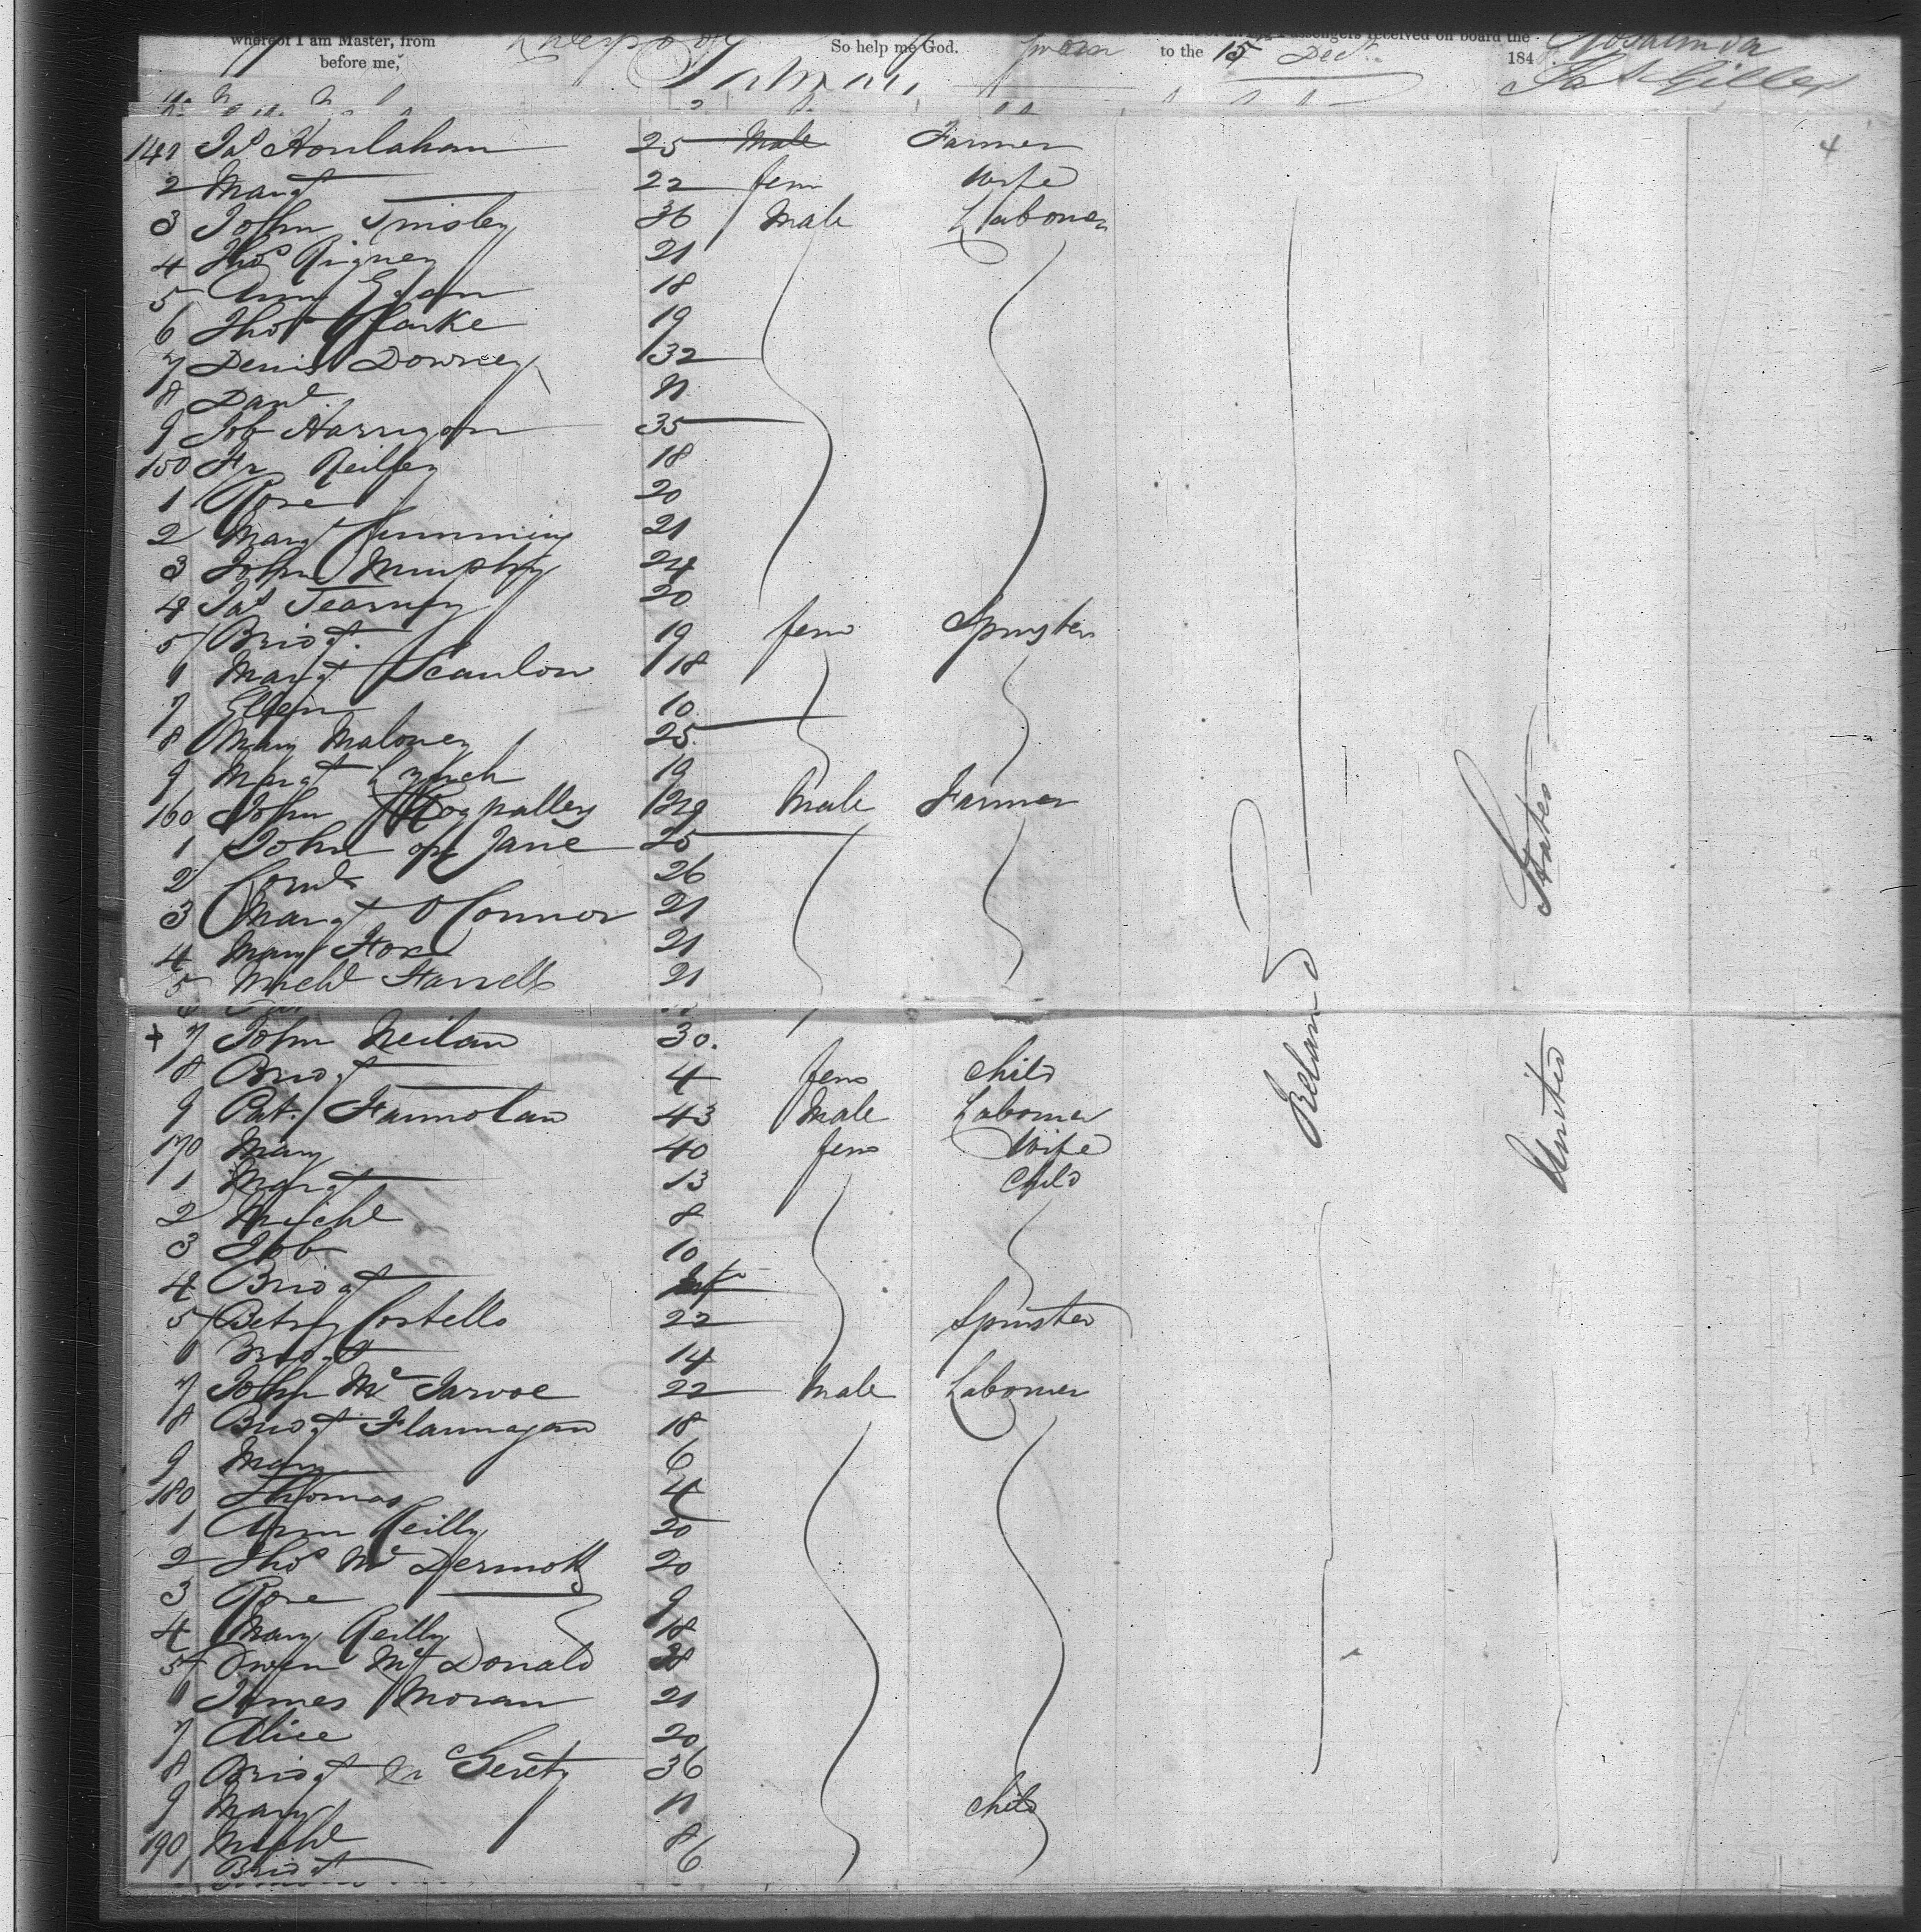 whereof I am Master, from Liverpool So help me God. Sworn to the 15 Dec. received on board the 184
before me,
141 Jas Houlahan 25 Male Farmer 4
2 Margt 22 fem Wife
3 John Tinsley 36 Male Labourer
4 Thos Rigney 21
5 Ann Egan 18
6 Thos Clarke 19
7 Denis Downey 32
8 Danl. 11
9 Job Harrigan 35
150 Fr Reilley 18
1 Rose 20
2 Margt Cummins 21
3 John Murphy 24
4 Jas Tearney 20
5 Bridgt. 19 fem Spinster
6 Margt Scanlon 18
7 Ellen 10
8 Mary Maloney 25
9 Margt Lynch 19
160 John 29 Male Farmer
1 John or Jane 25
2 26
3 Margt O Connor 21
4 Mary Fox 21
5 Michl Farrell 21
+ 7 John Neilan 30.
8 Bridgt 4 fem Child
9 Pat. 43 Male Labourer
170 Mary 40 fem Wife
1 Margt 13 Child
2 Michl 8
3 Job 10
4 Bridgt
5 Betsy Costello 22 Spinster
6 Bridgt 14
7 John Mc 22 Male Labourer
8 Bridgt Flannagan 18
9 Mary 6
180 Thomas 4
1 Ann Reilly 20
2 Thos Mc Dermott 20
3 Rose 9
4 Mary Reilly 18
5 Owen Mc Donald
6 James Moran 21
7 Alice 20
8 Bridgt Mc Gerety 36
9 Mary 11 Child
190 Michl 8
1 Bridgt 6
Ireland
United States